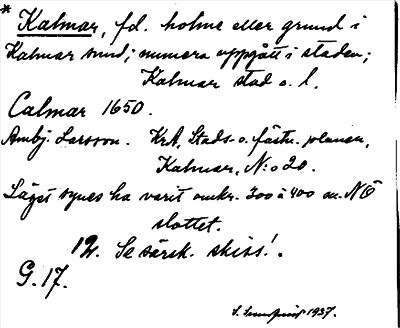 * Kalmar, fd. holme eller grund i
Kalmar sund; numera uppgått i staden;
Kalmar stad o. l.
Calmar 1650.
Ambj. Larsson. KrA, Stads- o. fästn. planer,
Kalmar, N:o 20.
Läget synes ha varit omkr. 300 à 400 m. NÖ
slottet.
12. Se särsk. skiss!.
G. 17.
1937.